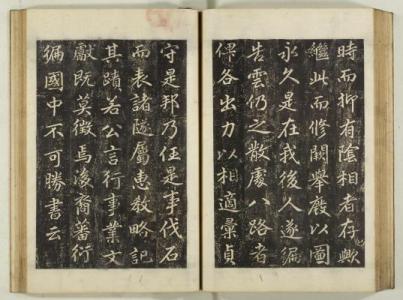 時而抑有陰相者存歟
繼此而修闕舉廢以圖
永久是在我後人遂徧
告雲仍之散處八路者
俾各出力以相適彙貞
守是邦乃伍是事伐石
而表諸隧屬惠敎略記
其蹟若公言行事業文
獻既莫徵焉後裔蕃衍
徧國中不可勝書云